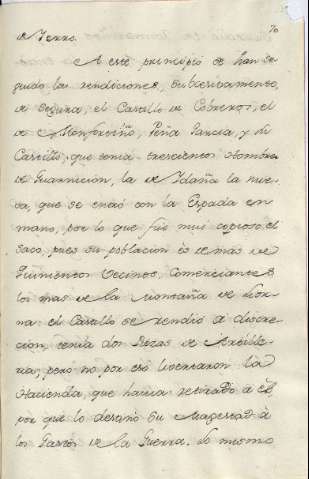 70
de Yerro.
A este principio se han se
guido las rendiciones, subcesivamente,
de Segura, el Castillo de Cobreros, el
de Monfortiño, Peña Garcia, y su
Castillo, que tenia trescientos hombres
de Guarnicion, la de Ydaña la nue
va, que se entró con la Espada en
mano, por lo que fué mui copioso el
saco, pues su poblacion es de mas de
quinientos vecinos, Comerciantes
los mas de la Montaña de
el Castillo se rendió a discre
cion, tenia dos Piezas de Artille
ria, pero no por eso livertaron la
Hacienda, que havia retirado a él,
por que lo destinó Su Magestad à
los Gastos de la Guerra. Lo mismo